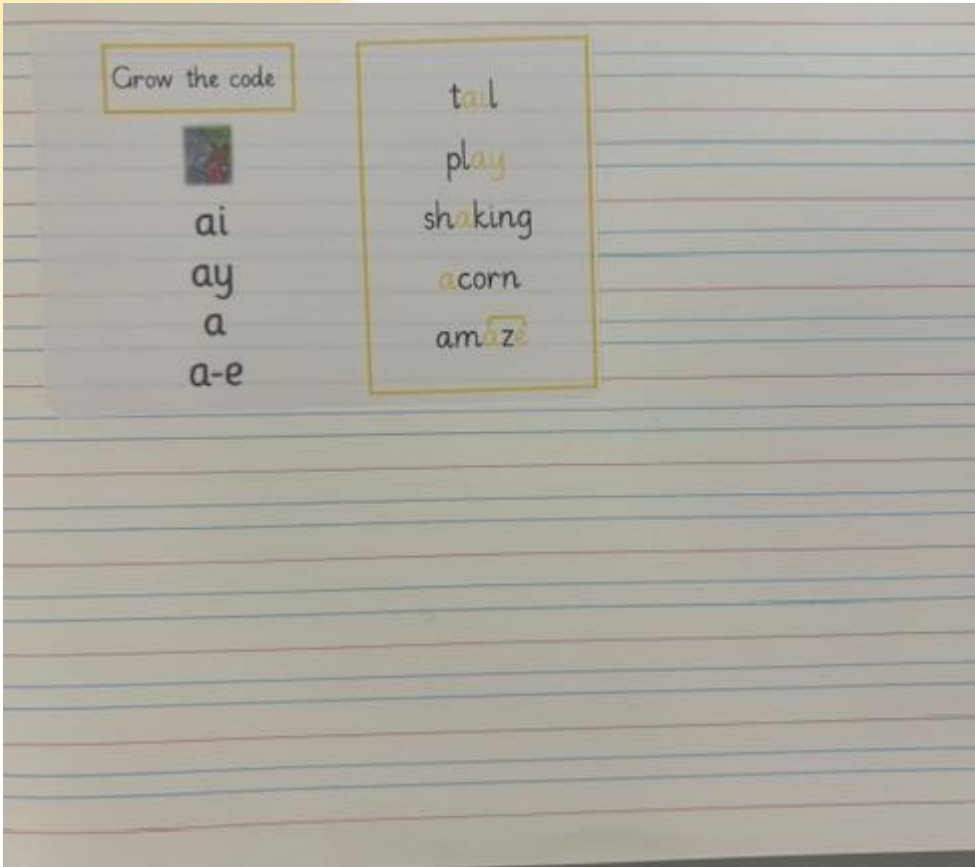 Grow the code
ai
ay
a
a-e
tail
play
shaking
acorn
amaze